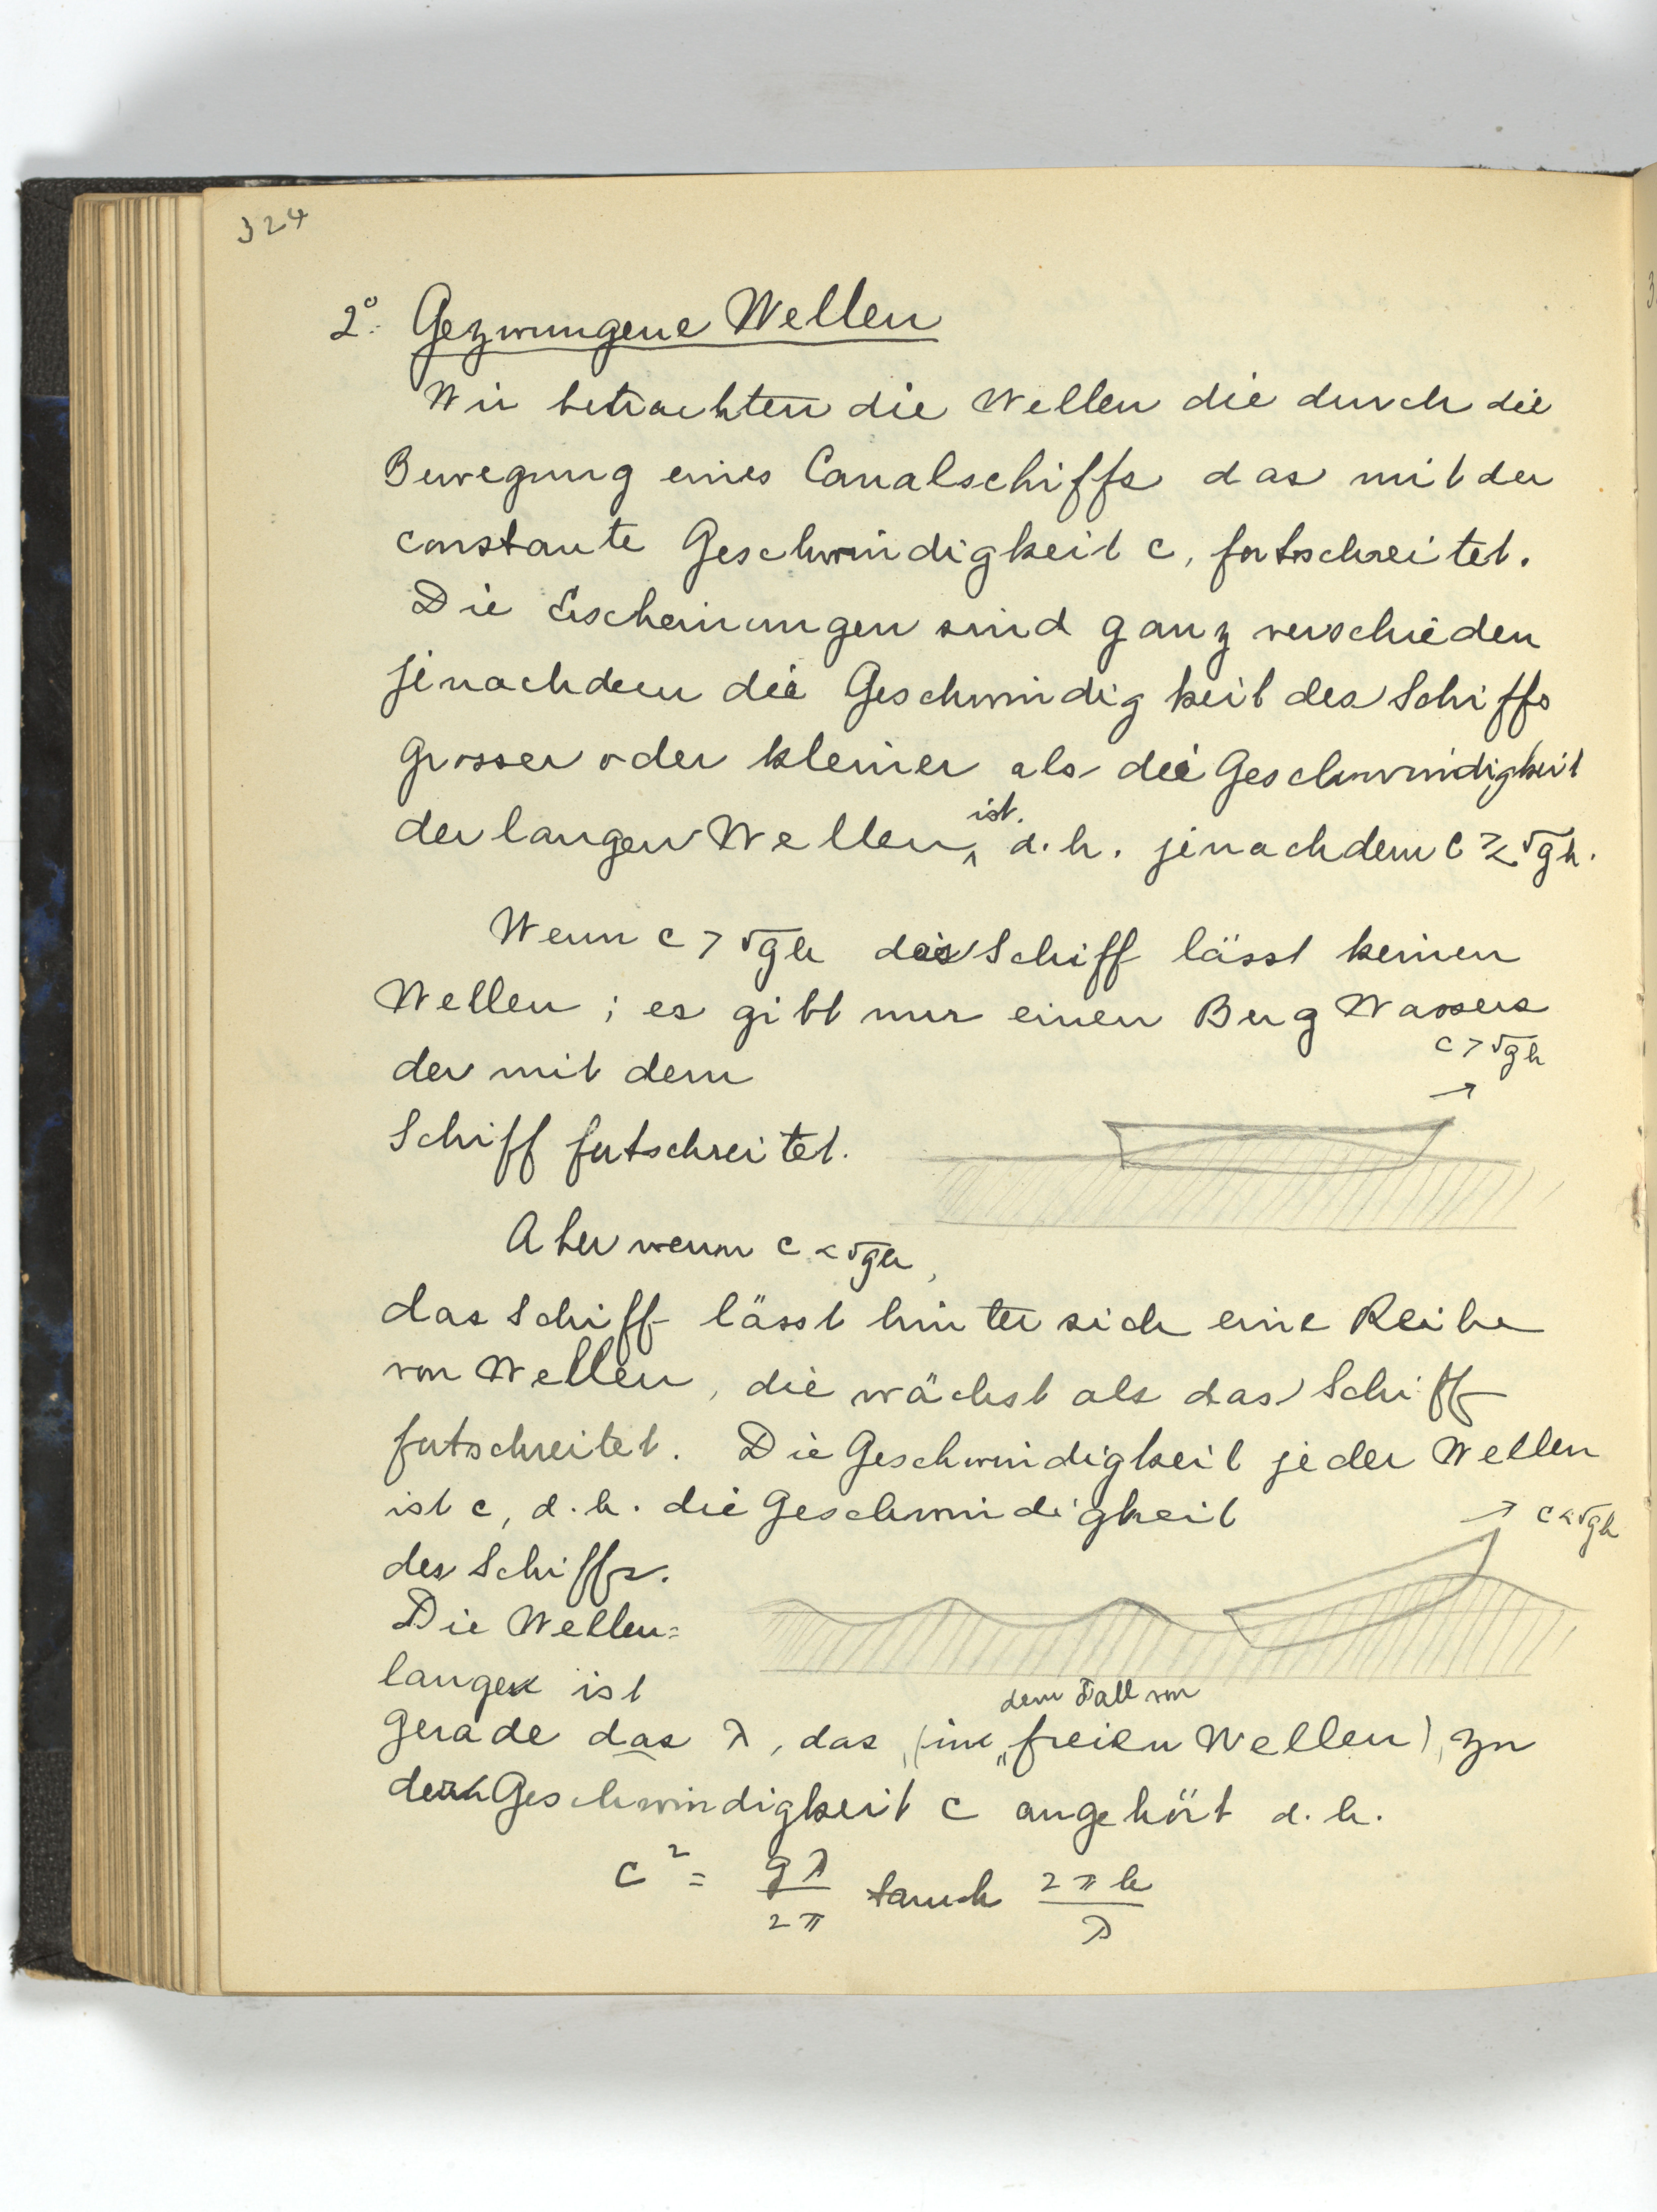 324
2º. Gezwungene Wellen
Wir betrachten die Wellen die durch die
Bewegung eines Canalschiffs das mit der
constante Geschwindigkeit c, fortschreitet.
Die Erscheinungen sind ganz verschieden
jenachdem die Geschwindigkeit des Schiffs
grosser oder kleiner als die Geschwindigkeit
der langen Wellen ist. d.h. jenachdem c ≷ √gh.
Wenn c > √gh das Schiff lässt keinen
Wellen ; es gibt nur einen Berg Wassers
c > √gh
der mit dem
Schiff fortschreitet.
Aber wenn c < √gh,
das Schiff lässt hinter sich eine Reihe
von Wellen, die wächst als das Schiff
fortschreitet. Die Geschwindigkeit jeder Wellen
ist c, d.h. die Geschwindigkeit
c < √gh
des Schiffs.
Die Wellen=
lange ist
dem Fall von
gerade das λ, das, (in freien Wellen), zu
der Geschwindigkeit c angehört d.h.
c² = gλ/2π tanh 2πh/λ